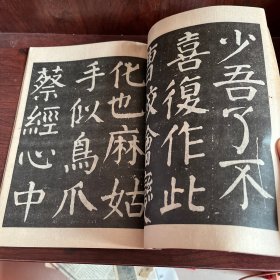 少吾了不
喜復作此
化也麻姑
手似鳥爪
蔡經心中